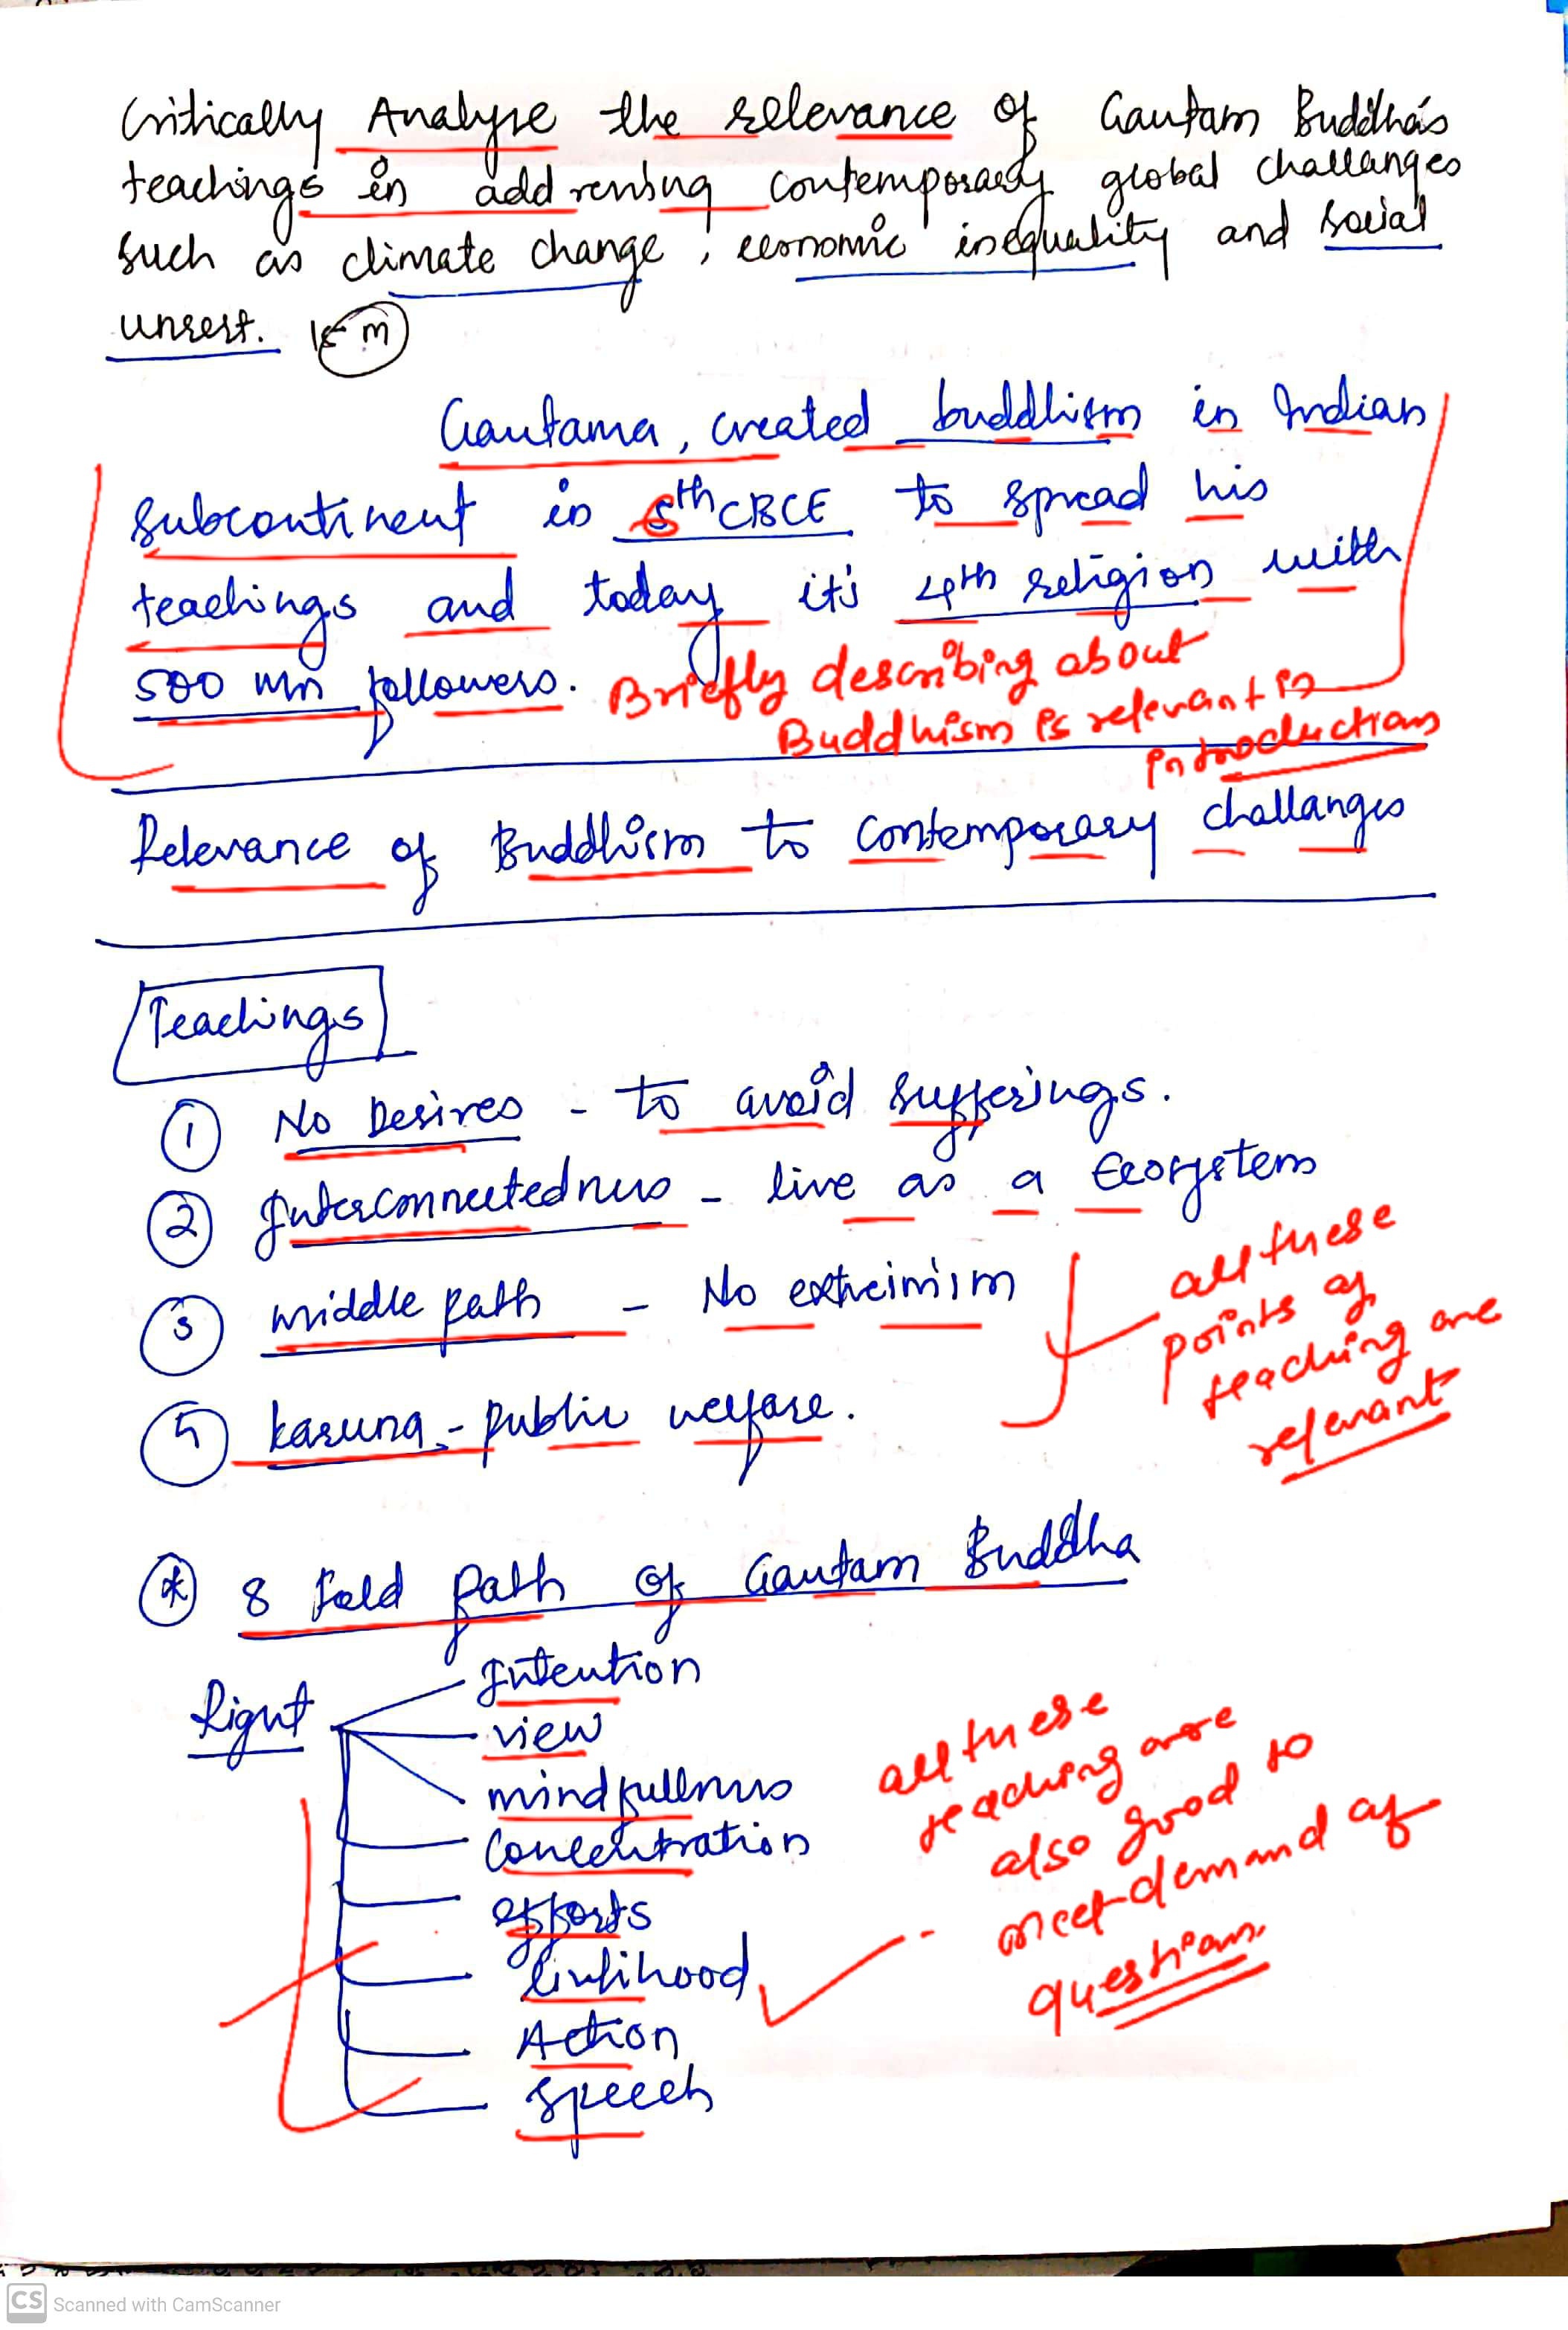 Critically Analyse the relevance of Gautam Buddha's
teachings in addressing contemporary global challanges
such as climate change, economic inequality and social
unrest. 15 m
Gautama, created buddhism in Indian
subcontinent in 6th CBCE to spread his
teachings and today it's 4th religion with
500 mn followers.
Briefly describing about
Buddhism is relevant in
introduction
Relevance of Buddhism to contemporary challanges
Teachings
① No Desires - to avoid sufferings.
② Interconnectedness - live as a Ecosystem
③ middle path - No extreimism
all these
points of
teaching are
relevant
⑤ karuna - public welfare.
* 8 fold path of Gautam Buddha
Right
Intention
view
mindfullness
Concentration
efforts
livlihood
Action
speech
all these
teaching are
also good to
meet demand of
question.
CS Scanned with CamScanner